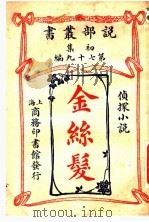 說部叢書
初集
第七十九編
偵探小說
金絲髮
上海
商務印書館發行